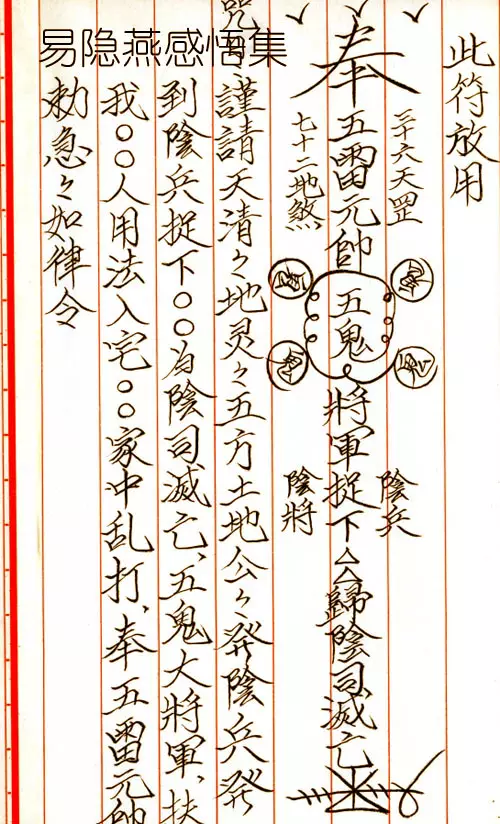 易隐燕感悟集
此符放用
三十六天罡
奉五雷元帥五鬼將軍捉下△△歸陰司滅亡
七十二地煞
陰兵
陰將
咒曰、謹請天清々地灵々五方土地公々發陰兵發
到陰兵捉下○○為陰司滅亡、五鬼大將軍、扶
我○○人用法入宅○○家中乱打、奉五雷元帥
勅急々如律令